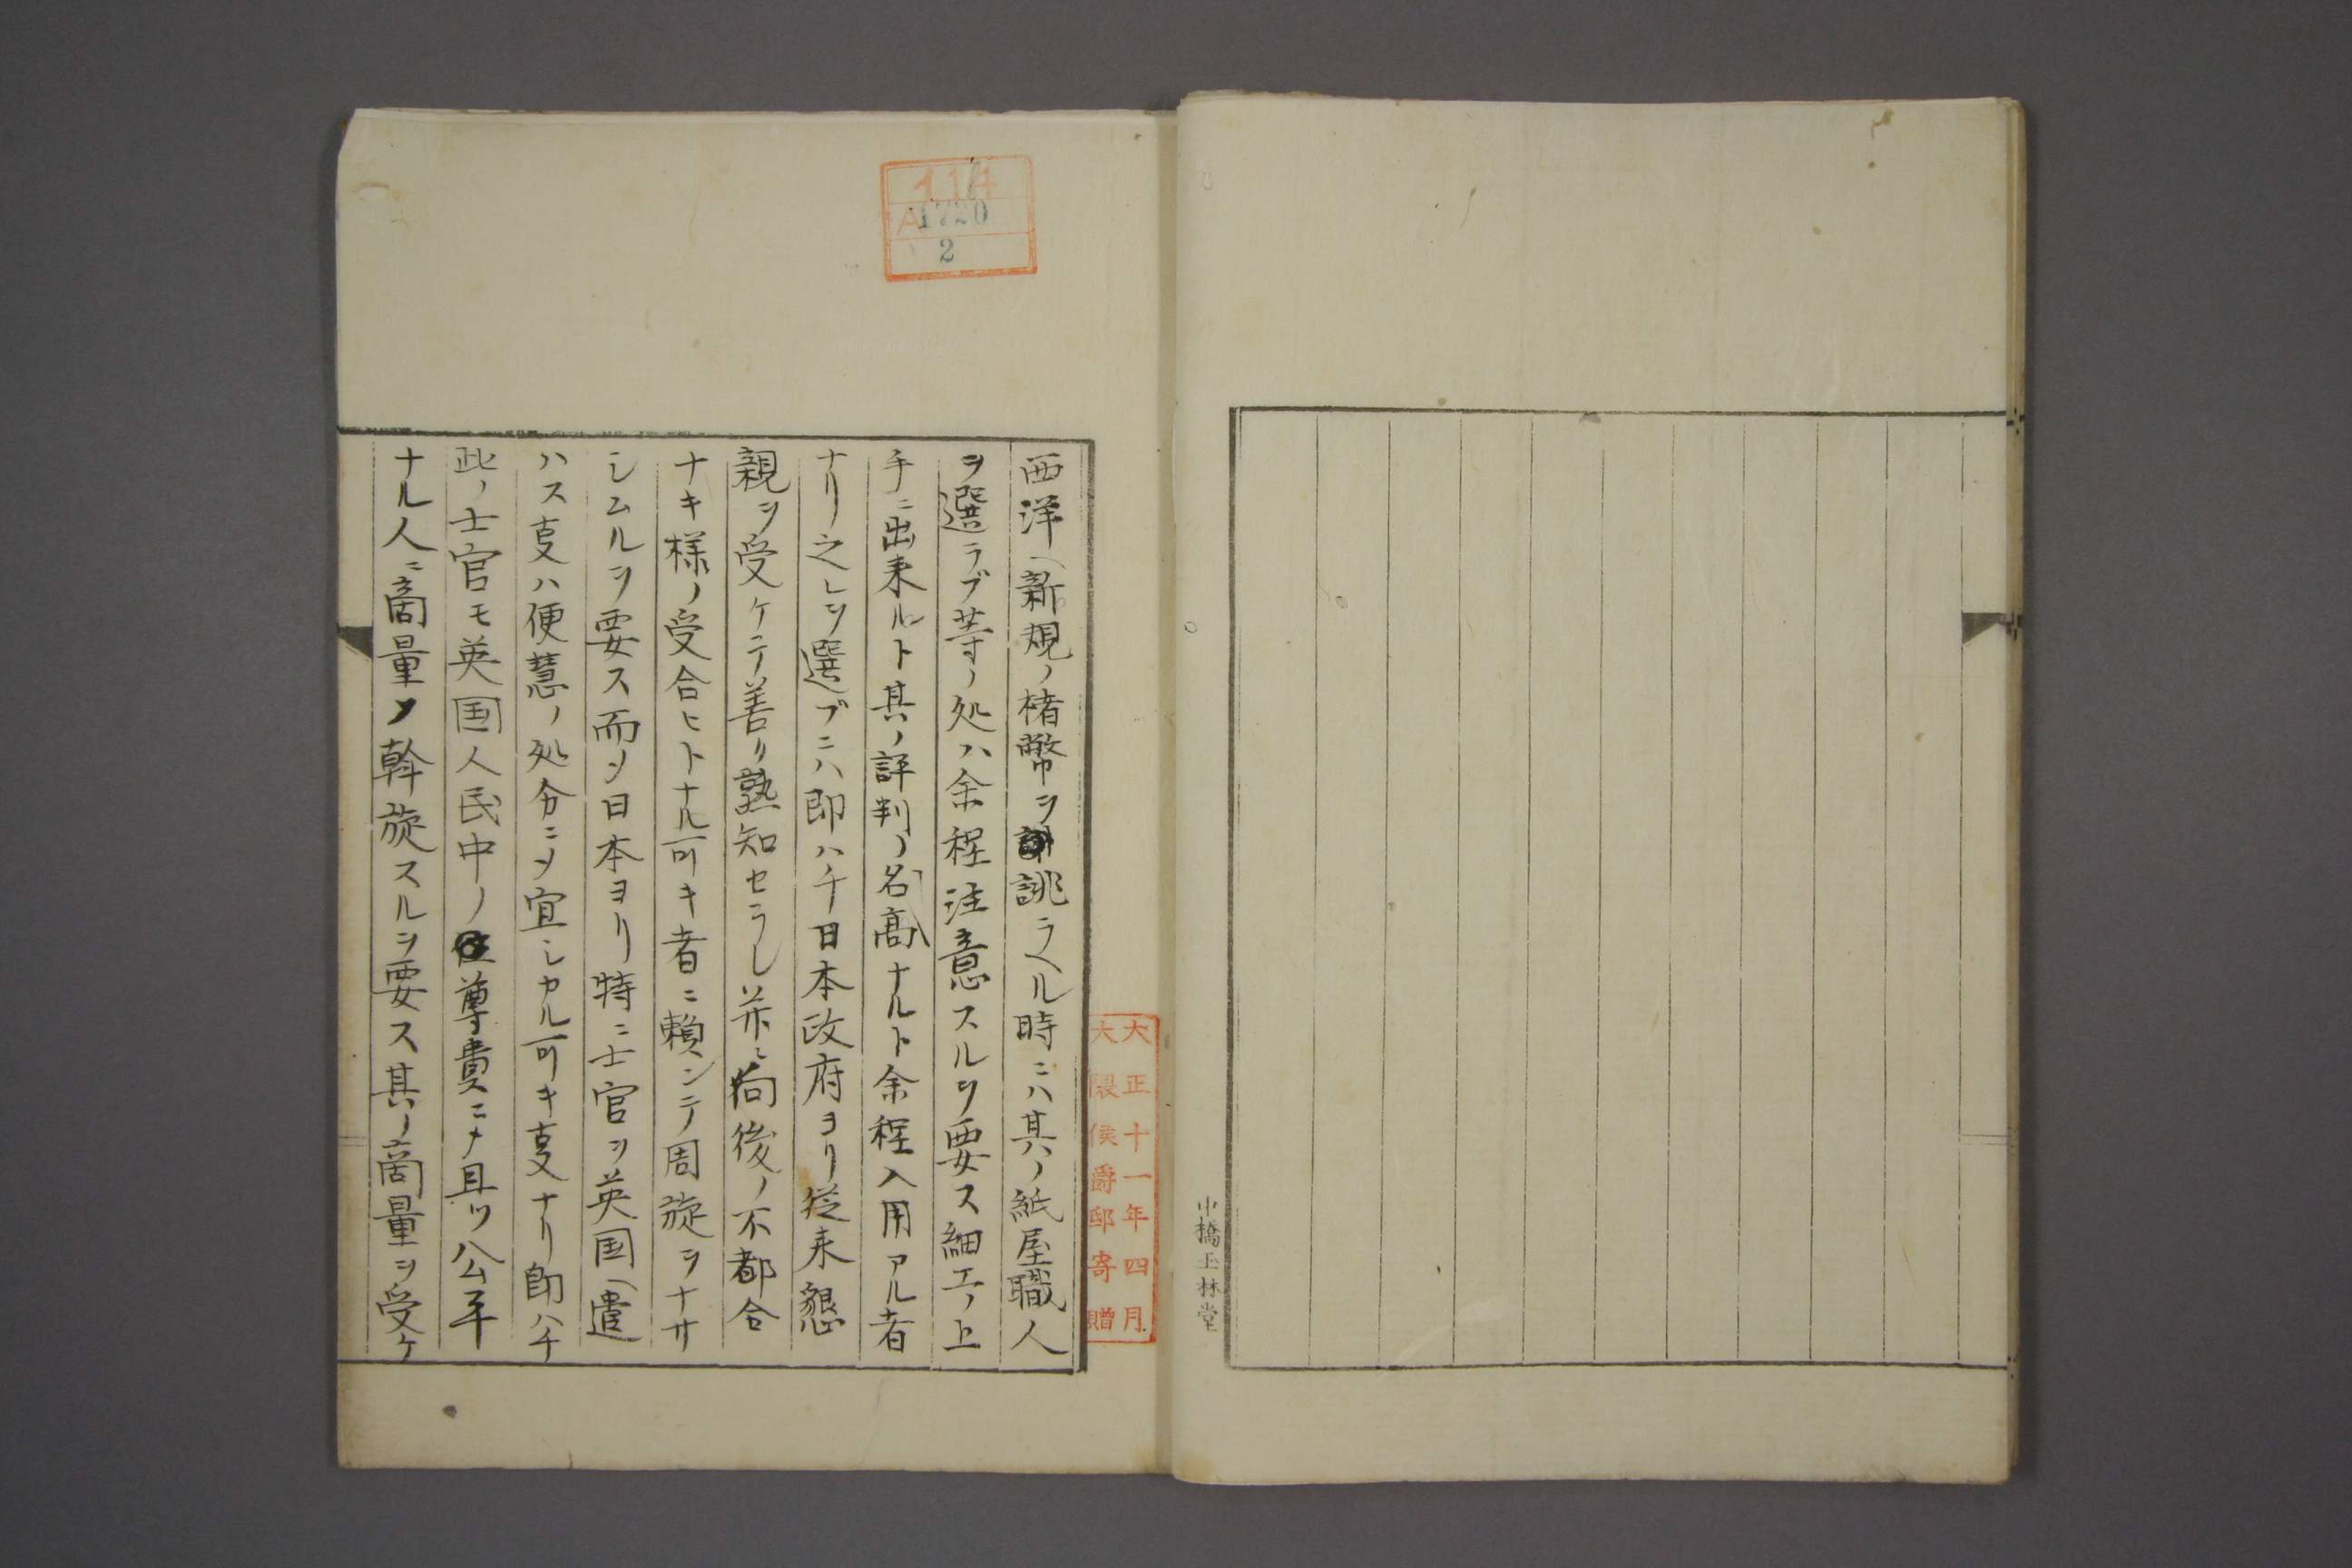 中橋玉林堂
大正十一年四月
大隈侯爵邸寄贈
114
A1720
2
西洋ヘ新規ノ楮幣ヲ誂ラヘル時ニハ其ノ紙屋職人
ヲ選ラブ等ノ処ハ余程注意スルヲ要ス細工ノ上
手ニ出来ルト其ノ評判ノ名高ナルト余程入用アル者
ナリ之レヲ選ブニハ即ハチ日本政府ヨリ従来懇
親ヲ受ケテ善リ熟知セラレ並ニ向後ノ不都合
ナキ様ノ受合ヒトナル可キ者ニ頼ンテ周旋ヲナサ
シムルヲ要ス而〆日本ヨリ特ニ士官ヲ英国ヘ遣
ハス叓ハ便慧ノ処分ニ〆宜シカル可キ叓ナリ即ハチ
此ノ士官モ英国人民中ノ尊貴ニ〆且ツ公平
ナル人ニ商量〆斡旋スルヲ要ス其ノ商量ヲ受ケ